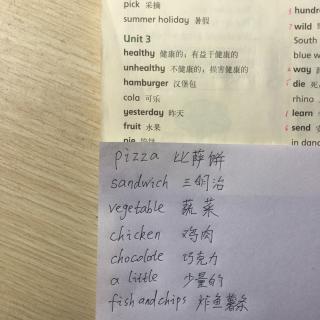 pick 采摘
summer holiday 暑假
Unit 3
healthy 健康的，有益于健康的
unhealthy 不健康的，损害健康的
hamburger 汉堡包
cola 可乐
yesterday 昨天
fruit 水果
pie
pizza 比萨饼
sandwich 三明治
vegetable 蔬菜
chicken 鸡肉
chocolate 巧克力
a little 少量的
fish and chips 炸鱼薯条
hundr
wild
South
blue w
way
die
rhino
learn
send
in danc